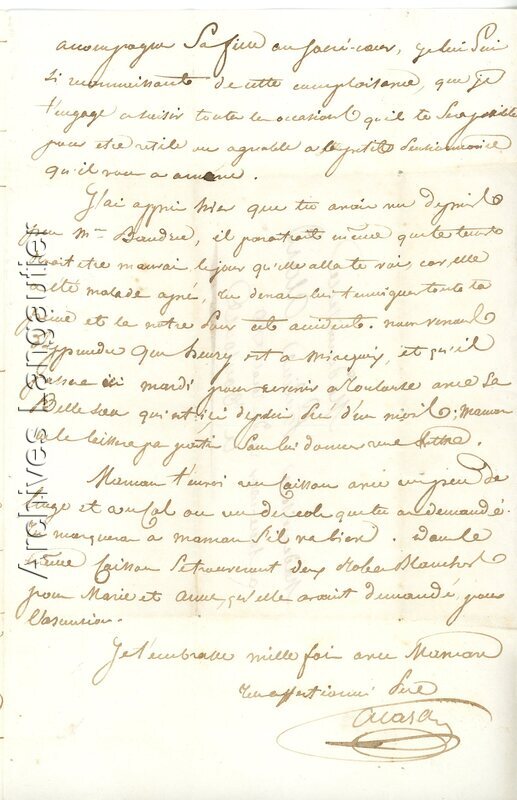 accompagner Sa fille au Sacré-coeur, je lui Suis
si reconnaissante de cette complaisance, que je
t'engage a saisir toutes les occasions qu'il te Sera possible
pour etre utile ou agréable a la petite Pensionnaire
qu'il vous a amené.
J'ai appris hier que tu avais vu depuis
peu Mme Baudru, il paraitrait même que le tems
avait été mauvais le jour qu'elle alla te voir car elle
a été malade après, tu devais lui temoigner toute ta
peine et la notre pour cet accident. nous venons
d'apprendre que henry est a , et qu'il
passera ici mardi pour revenir a Toulouse avec Sa
Belle Soeur qui est ici depuis près d'un mois; Maman
ne le laissera pas partir Sans lui donner une lettre.
Maman t'envoi un Caisson avec un peu de
linge et un Col ou un de que tu as demandé.
tu marqueras a maman S'il va bien. dans le
même Caisson Se trouveront deux Robes Blanches
pour Marie et Anne, qu'elle avait demandé, pour
l'ascension.
Je t'embrasse mille fois avec Maman
ton affectionné Père
Archives Langautier